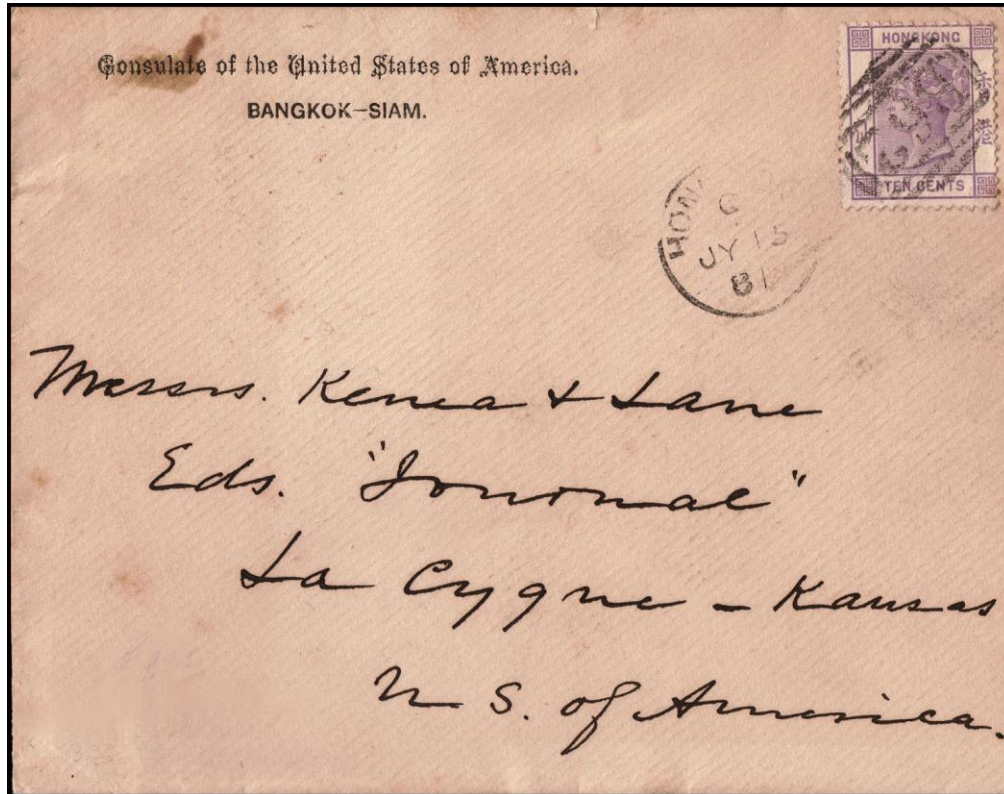 Consulate of the United States of America.
BANGKOK-SIAM.
HONGKONG
TEN CENTS
G
JY 15
81
Messrs. Kenea + Lane
Eds. "Journal"
La Cygne - Kansas
U S. of America.